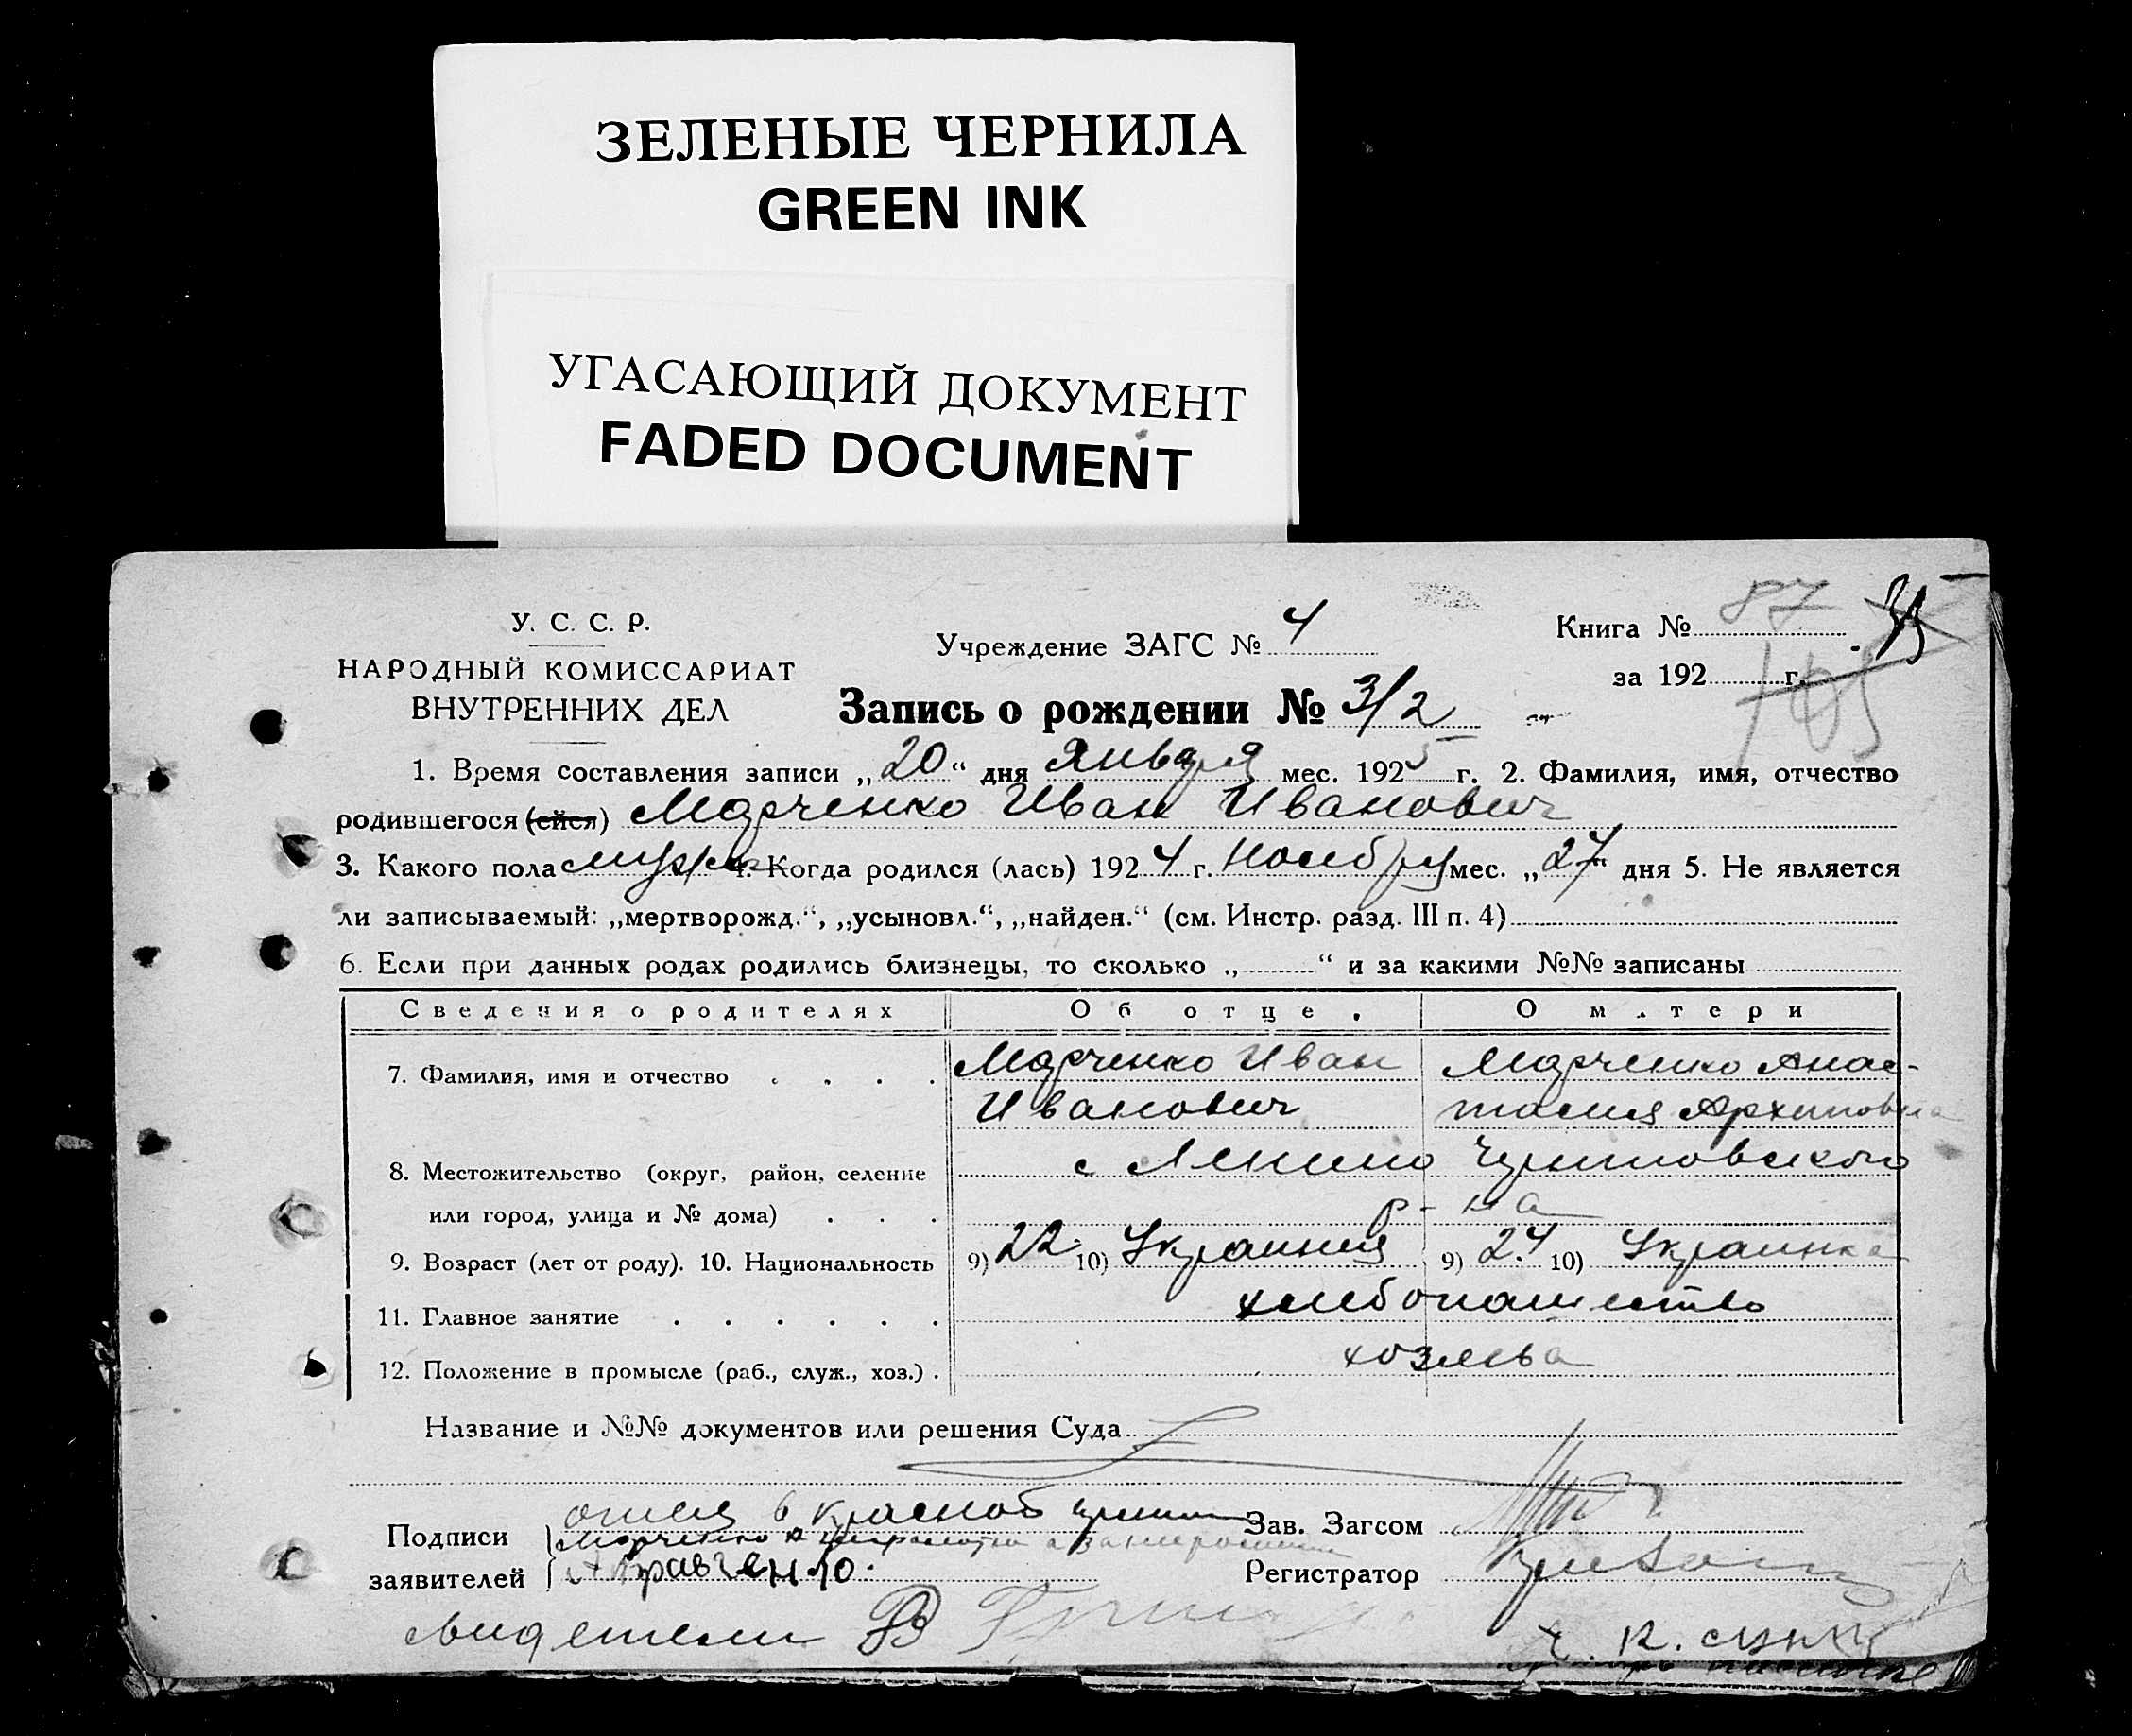 ЗЕЛЕНЫЕ ЧЕРНИЛА
GREEN INK
УГАСАЮЩИЙ ДОКУМЕНТ
FADED DOCUMENT
У. С. С. Р.
НАРОДНЫЙ КОМИССАРИАТ
ВНУТРЕННИХ ДЕЛ
Учреждение ЗАГС № 4
Книга № 87
за 192 г.
105
Запись о рождении № 312
1. Время составления записи „20“ дня Января мес. 1925 г. 2. Фамилия, имя, отчество
родившегося (ейся) Марченко Иван Иванович
3. Какого пола муж 4. Когда родился (лась) 1924 г. Ноября мес. „27“ дня 5. Не является
ли записываемый: „мертворожд.“, „усыновл.“, „найден.“ (см. Инстр. разд. III п. 4)
6. Если при данных родах родились близнецы, то сколько „ “ и за какими №№ записаны
Сведения о родителях Об отце. О матери
7. Фамилия, имя и отчество Марченко Иван Марченко Анас-
Иванович тасия Архиповна
8. Местожительство (округ, район, селение с Ленино
или город, улица и № дома) р-на
9. Возраст (лет от роду). 10. Национальность 9) 22 10) Украинец 9) 24 10) Украинка
11. Главное занятие хлебопашество
12. Положение в промысле (раб., служ., хоз.) хозяева
Название и №№ документов или решения Суда
Подписи отец
заявителей Марченко
Зав. Загсом
Регистратор
свидетели